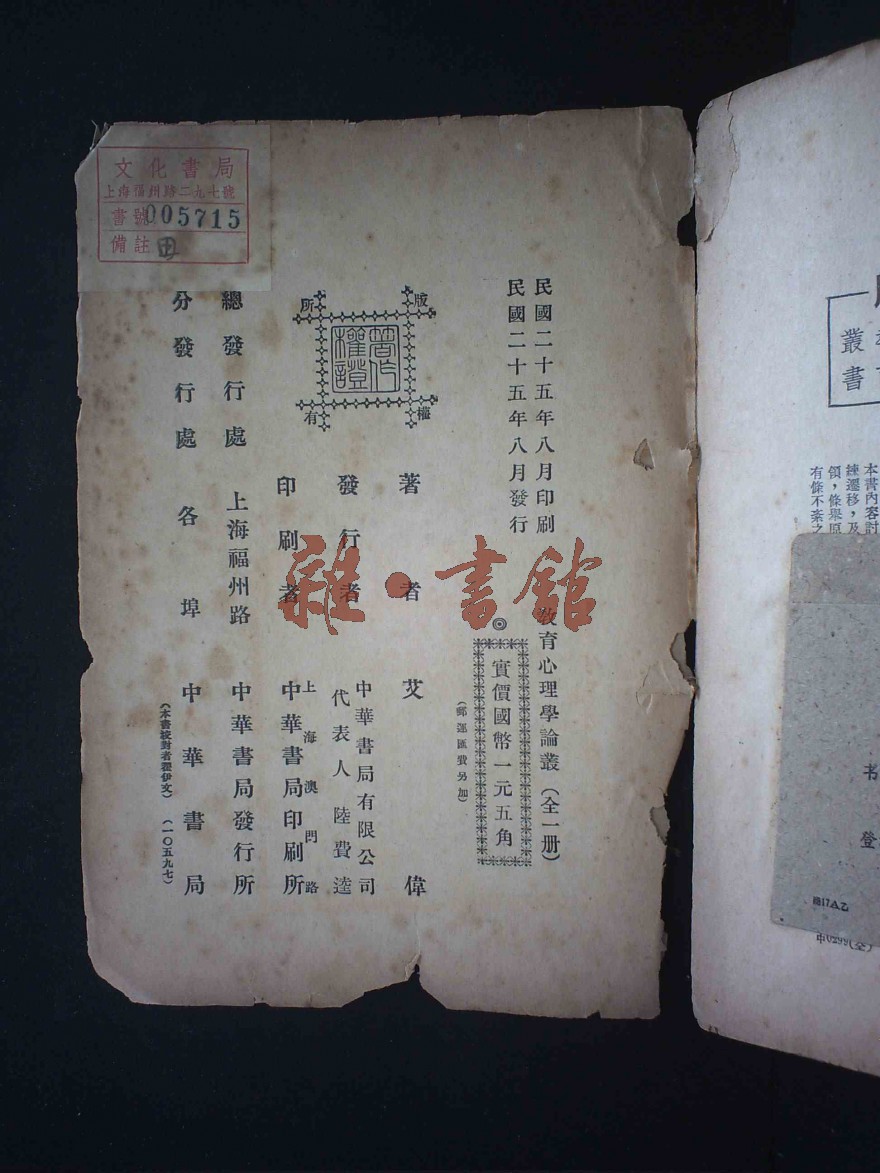 文化書局
上海福州路二九七號
書號005715
備註 田
民國二十五年八月印刷
民國二十五年八月發行
教育心理學論叢（全一册）
◎實價國幣一元五角
（郵運匯費另加）
著者 艾偉
發行者 中華書局有限公司
代表人 陸費逵
印刷者 上海澳門路
中華書局印刷所
版權所有
著作權證
總發行處 上海福州路 中華書局發行所
分發行處 各埠 中華書局
（本書校對者翟伊文）（一〇五九七）
雜·書館
叢書
本書内容討
練遷移，及
領，條舉原
有條不紊之
书
登